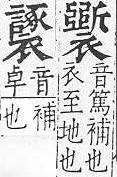 音篤補也
衣至地也
音補
卓也